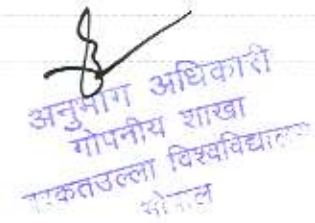 अनुभाग अधिकारी
गोपनीय शाखा
बरकतउल्ला विश्वविद्यालय
भोपाल